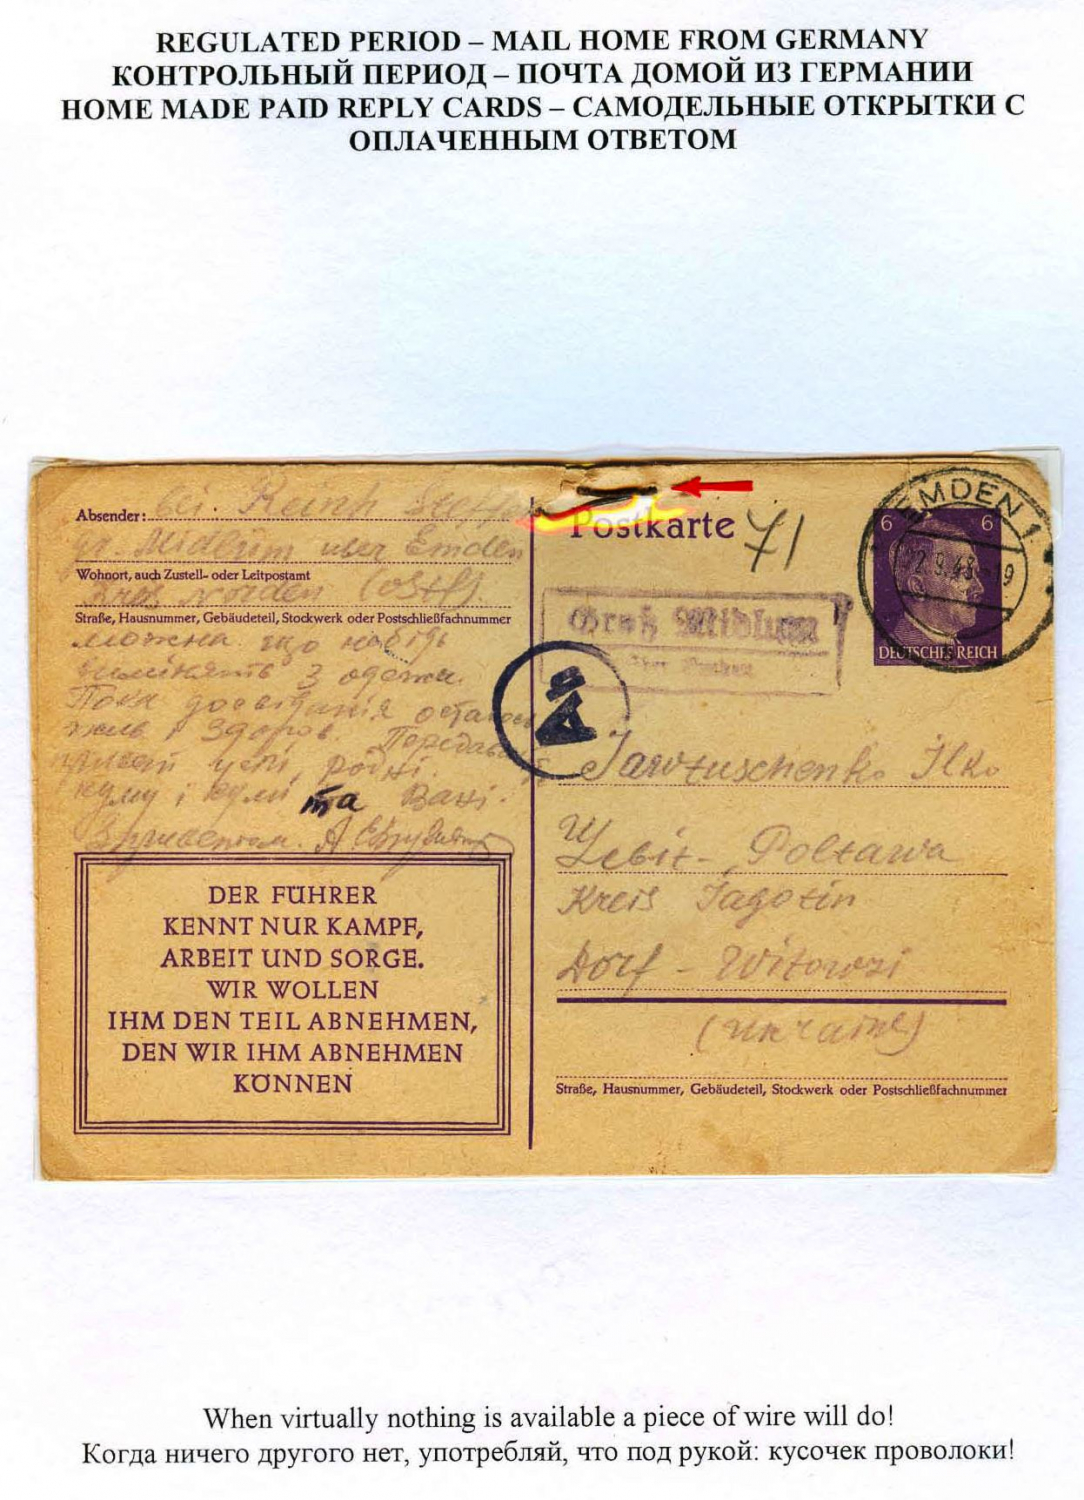 REGULATED PERIOD – MAIL HOME FROM GERMANY
КОНТРОЛЬНЫЙ ПЕРИОД – ПОЧТА ДОМОЙ ИЗ ГЕРМАНИИ
HOME MADE PAID REPLY CARDS – САМОДЕЛЬНЫЕ ОТКРЫТКИ С
ОПЛАЧЕННЫМ ОТВЕТОМ
Absender: bei
gr. Midlum über Emden
Wohnort, auch Zustell- oder Leitpostamt
Kreis Norden (Ostf).
Straße, Hausnummer, Gebäudeteil, Stockwerk oder Postschließfachnummer
можна що небудь
з одежи.
Пока досвіданія остаюсь
жив і здоров. Передавай
привет усей родні.
куму і кумі та Вані.
З приветом.
DER FÜHRER
KENNT NUR KAMPF,
ARBEIT UND SORGE.
WIR WOLLEN
IHM DEN TEIL ABNEHMEN,
DEN WIR IHM ABNEHMEN
KÖNNEN
Postkarte
71
EMDEN 1
22.9.43-19
6 6
DEUTSCHES REICH
Groß Midlum
über Emden
Ae
Jawtuschenko Ilko
Gebit - Poltawa
Kreis Jagotin
Dorf - Witowzi
(Ukraine)
Straße, Hausnummer, Gebäudeteil, Stockwerk oder Postschließfachnummer
When virtually nothing is available a piece of wire will do!
Когда ничего другого нет, употребляй, что под рукой: кусочек проволоки!